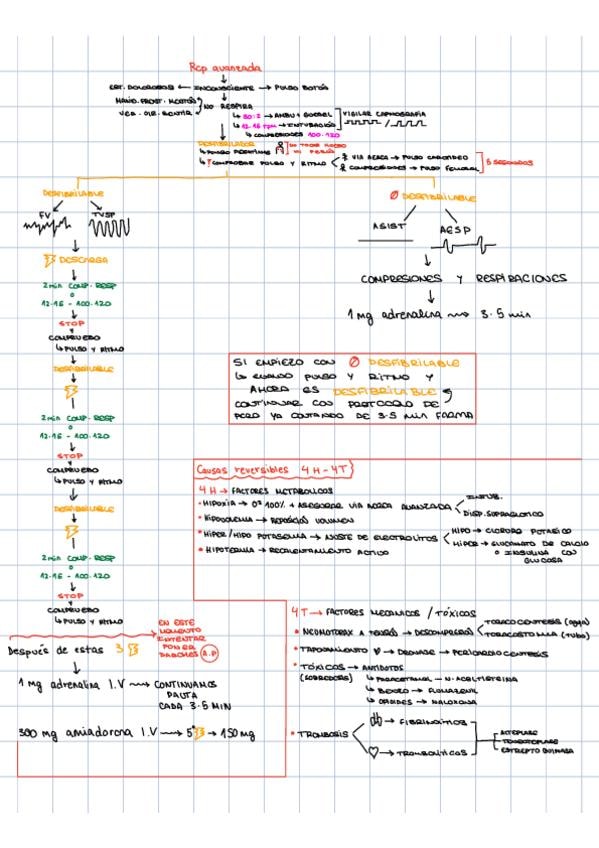 Rcp avanzada
EST. DOLOROSOS ← INCONSCIENTE → PULSO BOTÓN
MANIO. FRENT. MENTÓN
NO RESPIRA
VER . OIR. SENTIR
30:2 → AMBU + GUEDEL
VIGILAR CAPNOGRAFIA
12.16 rpm → INTUBACIÓN
↳ COMPRESIONES 100.120
DESFIBRILADOR
NO TOCAR NADIE
MI PERSO
↳ COMPROBAR PULSO Y RITMO
VIA AEREA → PULSO CAROTIDEO
COMPRESIONES → PULSO FEMORAL
5 SEGUNDOS
DESFIBRILABLE
FV
TVSP
DESCARGA
2 min COMP - RESP
o
12.16 - 100.120
STOP
COMPRUEBO
↳ PULSO Y RITMO
DESFIBRILABLE
2 min COMP - RESP
o
12.16 - 100.120
STOP
COMPRUEBO
↳ PULSO Y RITMO
DESFIBRILABLE
2 min COMP - RESP
o
12.16 - 100.120
STOP
COMPRUEBO
↳ PULSO Y RITMO
EN ESTE
MOMENTO
INTENTAR
PONER
PARCHES A.P
Después de estas 3
1 mg adrenalina I.V → CONTINUAMOS
PAUTA
CADA 3.5 MIN
300 mg amiadorona I.V → 5º → 150 mg
Ø DESFIBRILABLE
ASIST
AESP
COMPRESIONES Y RESPIRACIONES
1 mg adrenalina → 3.5 min
SI EMPIEZO CON Ø DESFIBRILABLE
↳ CUANDO PULSO Y RITMO Y
AHORA ES DESFIBRILABLE
CONTINUAR CON PROTOCOLO DE
PERO YA CONTANDO DE 3.5 MIN FARMA
Causas reversibles 4H-4T
4 H → FACTORES METABOLICOS
• HIPOXIA → O² 100% + ASEGURAR VIA AEREA AVANZADA
INTUB.
DISP. SUPRAGLOTICO
• HIPOVOLEMIA → REPOSICIÓN VOLUMEN
• HIPER/HIPO POTASEMIA → AJUSTE DE ELECTROLITOS
HIPO → CLORURO POTASICO
HIPER → GLUCONATO DE CALCIO
O INSULINA CON
GLUCOSA
• HIPOTERMIA → RECALENTAMIENTO ACTIVO
4T → FACTORES MECANICOS / TÓXICOS
• NEOMOTORAX A TENSIÓ → DESCOMPRESIÓ
TORACOCENTESIS (aguja)
TORACOSTOMIA (tubo)
• TAPONAMIENTO ♡ → DRENAJE → PERICARDIOCENTESIS
• TÓXICOS → ANTIDOTOS
(SOBREDOSIS)
↳ PARACETAMOL - N. ACETILCISTEINA
↳ BENZO → FLUMAZENIL
↳ OPIOIDES → NALOXONA
• TROMBOSIS
→ FIBRINOLITICOS
♡ → TROMBOLITICOS
ALTEPLASE
TENECTEPLASE
ESTREPTOQUINASA